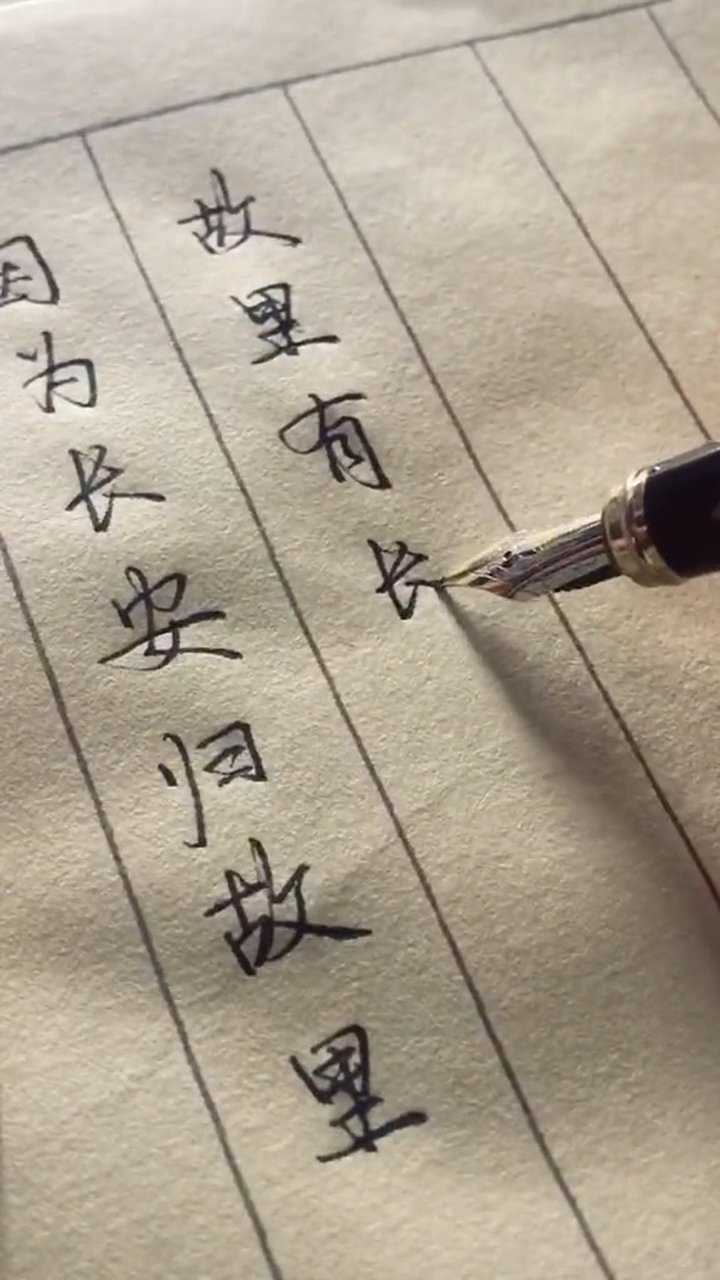 因为长安归故里
故里有长